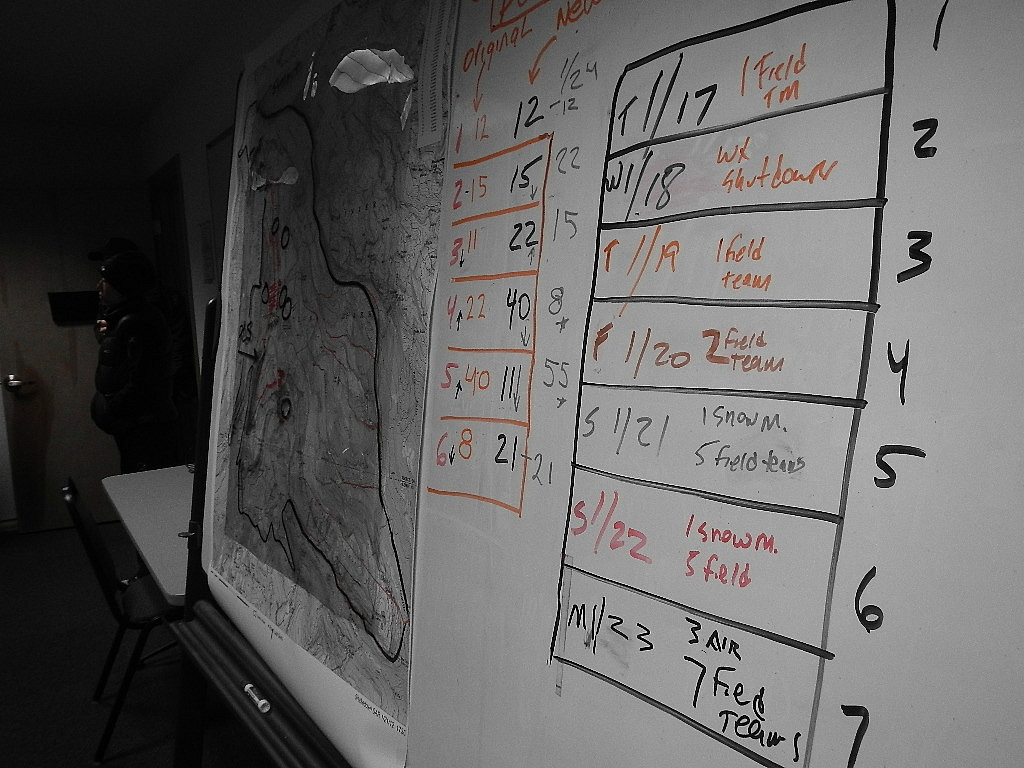 Original New
1/24
1 12 12 -12
2-15 15 22
3 11 22 15
4 22 40 8
5 40 11 55
6 8 21 -21
T 1/17 1 Field
TM
W 1/18 WX
Shutdown
T 1/19 1 field
team
F 1/20 2 field
team
S 1/21 1 snowm.
5 field teams
S 1/22 1 snowm.
5 field
M 1/23 3 AIR
7 Fied
Teams
1
2
3
4
5
6
7